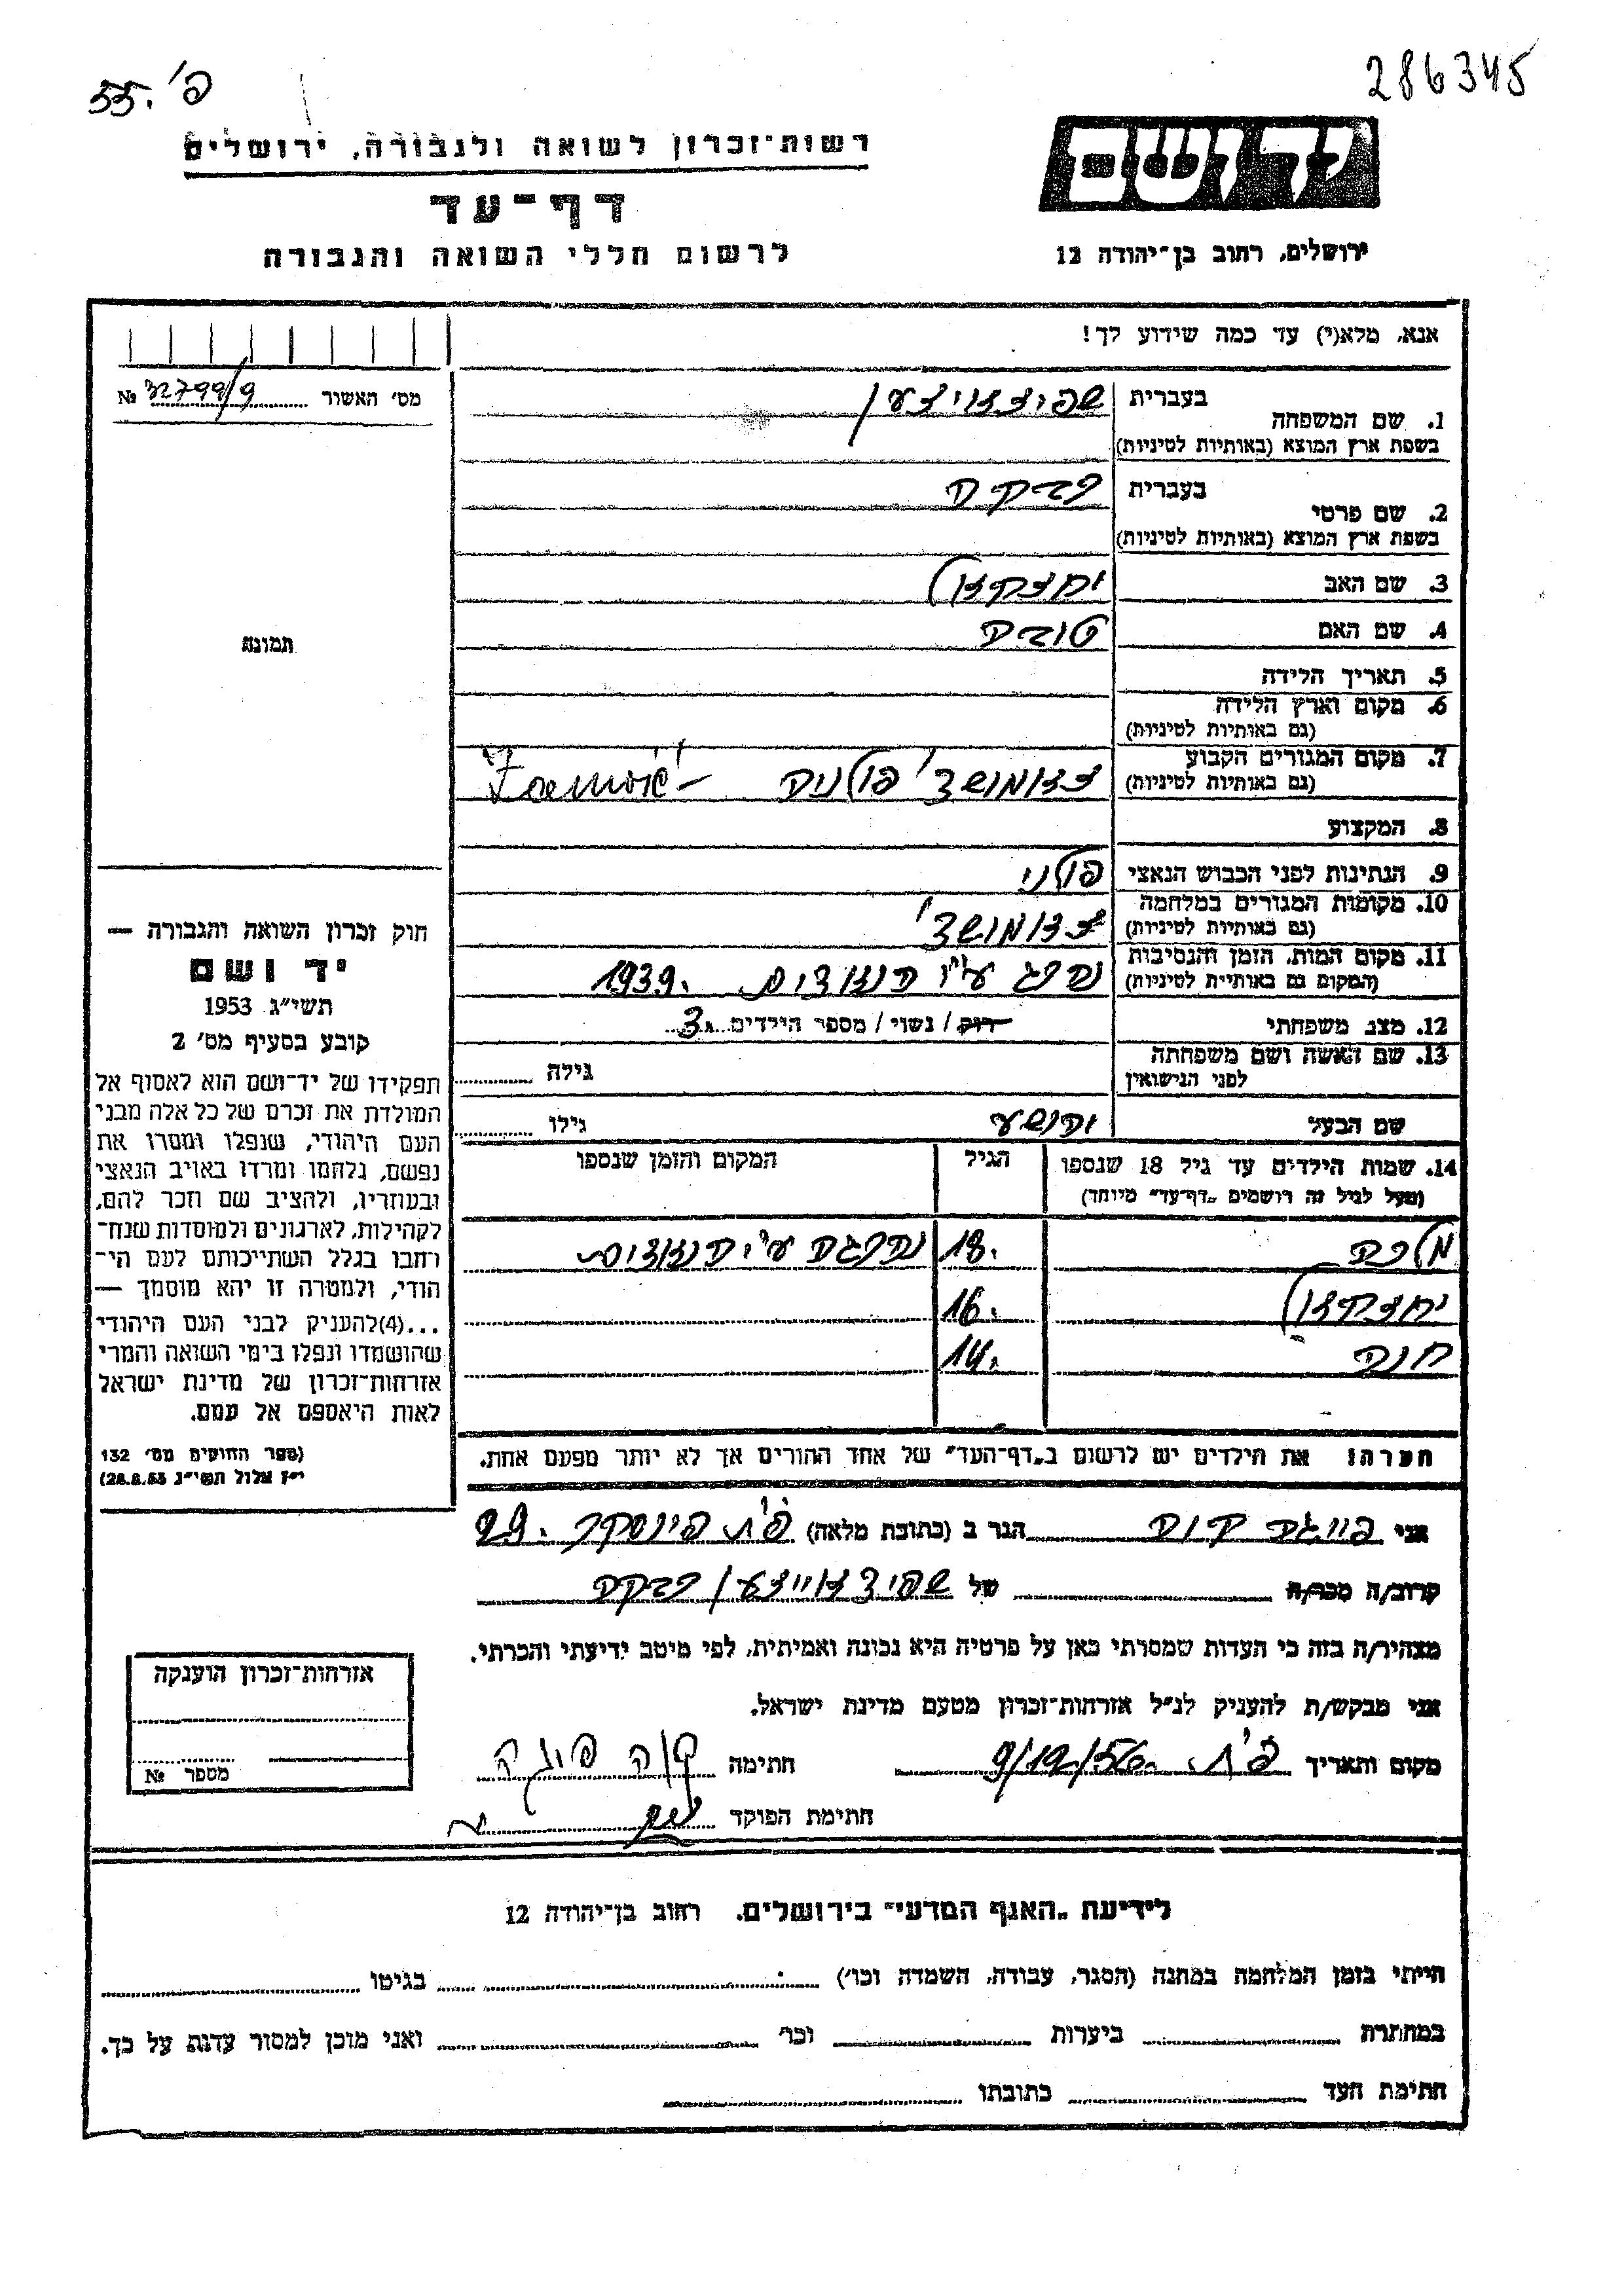 286345
פ׳ 55.
יד ושם
רשות־זכרון לשואה ולגבורה, ירושלים
דף־עד
ירושלים, רחוב בן־יהודה 12
לרשום חללי השואה והגבורה
אנא, מלא(י) עד כמה שידוע לך!
מס׳ האשור 32799/9 №
1. שם המשפחה
בעברית
בשפת ארץ המוצא (באותיות לטיניות)
2. שם פרטי
בעברית רבקה
בשפת ארץ המוצא (באותיות לטיניות)
3. שם האב יחזקאל
4. שם האם טובה
5. תאריך הלידה
6. מקום וארץ הלידה
(גם באותיות לטיניות)
7. מקום המגורים הקבוע
(גם באותיות לטיניות) זאמושץ׳ פולניה – Zamość
8. המקצוע
9. הנתינות לפני הכבוש הנאצי פולני
10. מקומות המגורים במלחמה
(גם באותיות לטיניות) זאמושץ׳
11. מקום המות, הזמן והנסיבות
(המקום גם באותיית לטיניות) נהרג ע״י הנאצים 1939.
12. מצב משפחתי רוק / נשוי / מספר הילדים 3
13. שם האשה ושם משפחתה
לפני הנישואין
גילה
שם הבעל יהושע גילו
14. שמות הילדים עד גיל 18 שנספו
(מעל לגיל זה רושמים „דף־עד״ מיוחד)
הגיל
המקום והזמן שנספו
מלכה 18. נהרגה ע״י הנאצים
יחזקאל 16.
חנה 14.
הערה! את הילדים יש לרשום ב„דף־העד״ של אחד ההורים אך לא יותר מפעם אחת.
תמונה
חוק זכרון השואה והגבורה —
יד ושם
תשי״ג 1953
קובע בסעיף מס׳ 2
תפקידו של יד־ושם הוא לאסוף אל
המולדת את זכרם של כל אלה מבני
העם היהודי, שנפלו ומסרו את
נפשם, נלחמו ומרדו באויב הנאצי
ובעוזריו, ולהציב שם וזכר להם,
לקהילות, לארגונים ולמוסדות שנח־
רחבו בגלל השתייכותם לעם הי־
הודי, ולמטרה זו יהא מוסמך —
...(4)להעניק לבני העם היהודי
שהושמדו ונפלו בימי השואה והמרי
אזרחות־זכרון של מדינת ישראל
לאות היאספם אל עמם.
(ספר החוקים מס׳ 132
י״ז אלול תשי״ג 28.8.53)
אני פייגה הגר ב (כתובת מלאה) פ״ת פינסקר 29.
קרוב/ה מכר/ה של רבקה
מצהיר/ה בזה כי העדות שמסרתי כאן על פרטיה היא נכונה ואמיתית, לפי מיטב ידיעתי והכרתי.
אני מבקש/ת להעניק לנ״ל אזרחות־זכרון מטעם מדינת ישראל.
מקום ותאריך פ״ת 9/12/56 חתימה
חתימת הפוקד
אזרחות־זכרון הוענקה
מספר №
לידיעת „האגף המדעי״ בירושלים. רחוב בן־יהודה 12
הייתי בזמן המלחמה במחנה (הסגר, עבודה, השמדה וכו׳) בגיטו
במחתרת ביערות וכו׳ ואני מוכן למסור עדות על כך.
חתימת העד כתובתו